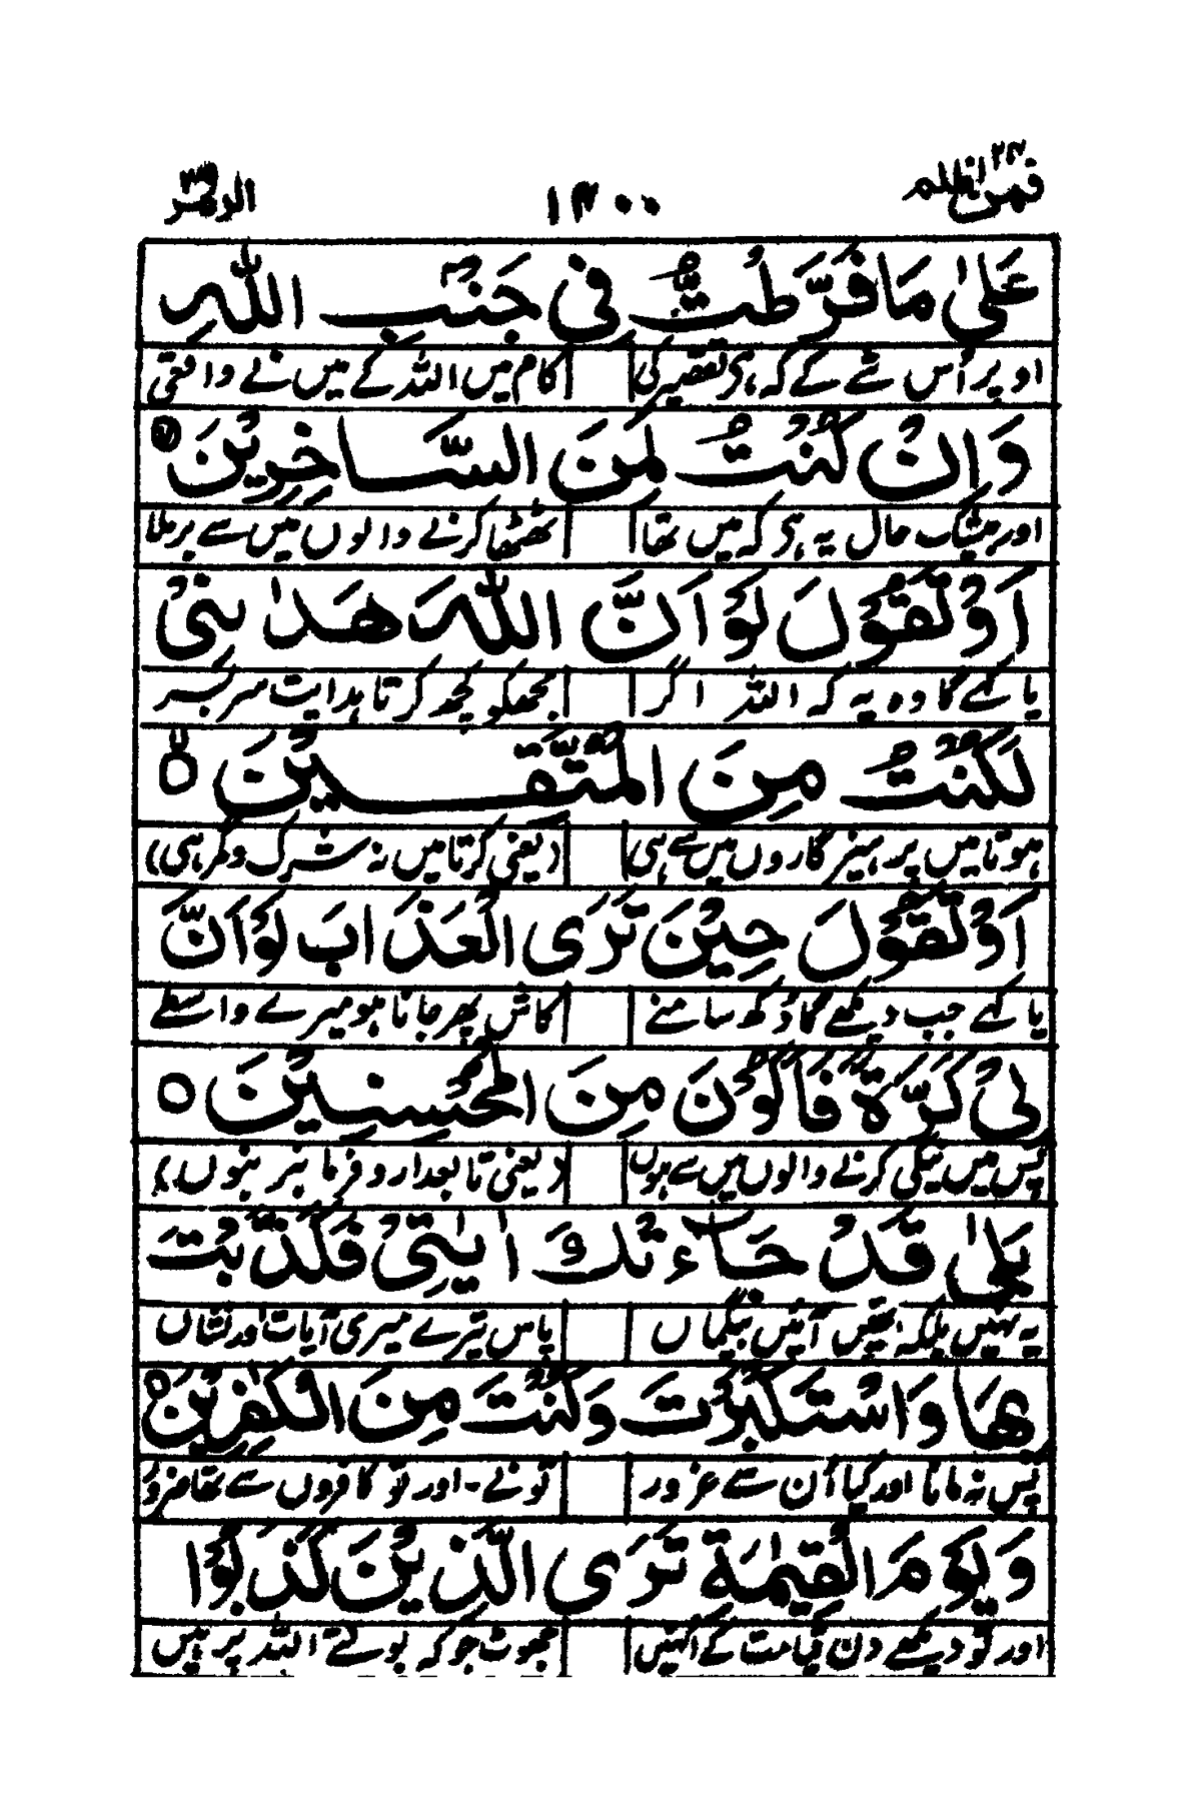 فمن اظلم ۲۴ ۱۴۰۰ الزمر ۳۹
عَلٰى مَا فَرَّطْتُّ فِىْ جَنْۢبِ اللّٰهِ
اوپر اُس شے کے کہ ہی تقصیر کی کام میں اللہ کے میں نے واقعی
وَاِنْ كُنْتُ لَمِنَ السَّاخِرِيْنَ
اور بیشک حال یہ ہی کہ میں تھا ٹھٹھا کرنے والوں میں سے برملا
اَوْ تَقُوْلَ لَوْ اَنَّ اللّٰهَ هَدٰىنِىْ
یا کہے گا وہ یہ کہ اللہ اگر مجھکو کچھ کرتا ہدایت سربسر
لَكُنْتُ مِنَ الْمُتَّقِيْنَ ۙ
ہوتا میں پرہیزگاروں میں سے ہی (یعنی کرتا میں نہ شرک و کفر ہی)
اَوْ تَقُوْلَ حِيْنَ تَرَى الْعَذَابَ لَوْ اَنَّ
یا کہے جب دیکھے گا دُکھ سامنے کاش پھر جانا ہو میرے واسطے
لِىْ كَرَّةً فَاَكُوْنَ مِنَ الْمُحْسِنِيْنَ ○
پس میں نیکی کرنے والوں میں سے ہوں (یعنی تابعدار و فرمانبر بنوں)
بَلٰى قَدْ جَآءَتْكَ اٰيٰتِىْ فَكَذَّبْتَ
یہ نہیں بلکہ تھیں آئیں بیگماں پاس تیرے میری آیات و نشاں
بِهَا وَاسْتَكْبَرْتَ وَكُنْتَ مِنَ الْكٰفِرِيْنَ
پس نہ مانا اور کیا اُن سے غرور تونے - اور تو کافروں سے تھا ضرور
وَيَوْمَ الْقِيٰمَةِ تَرَى الَّذِيْنَ كَذَبُوْا
اور تو دیکھے دن قیامت کے انہیں جھوٹ جو کہ بولتے اللہ پر ہیں